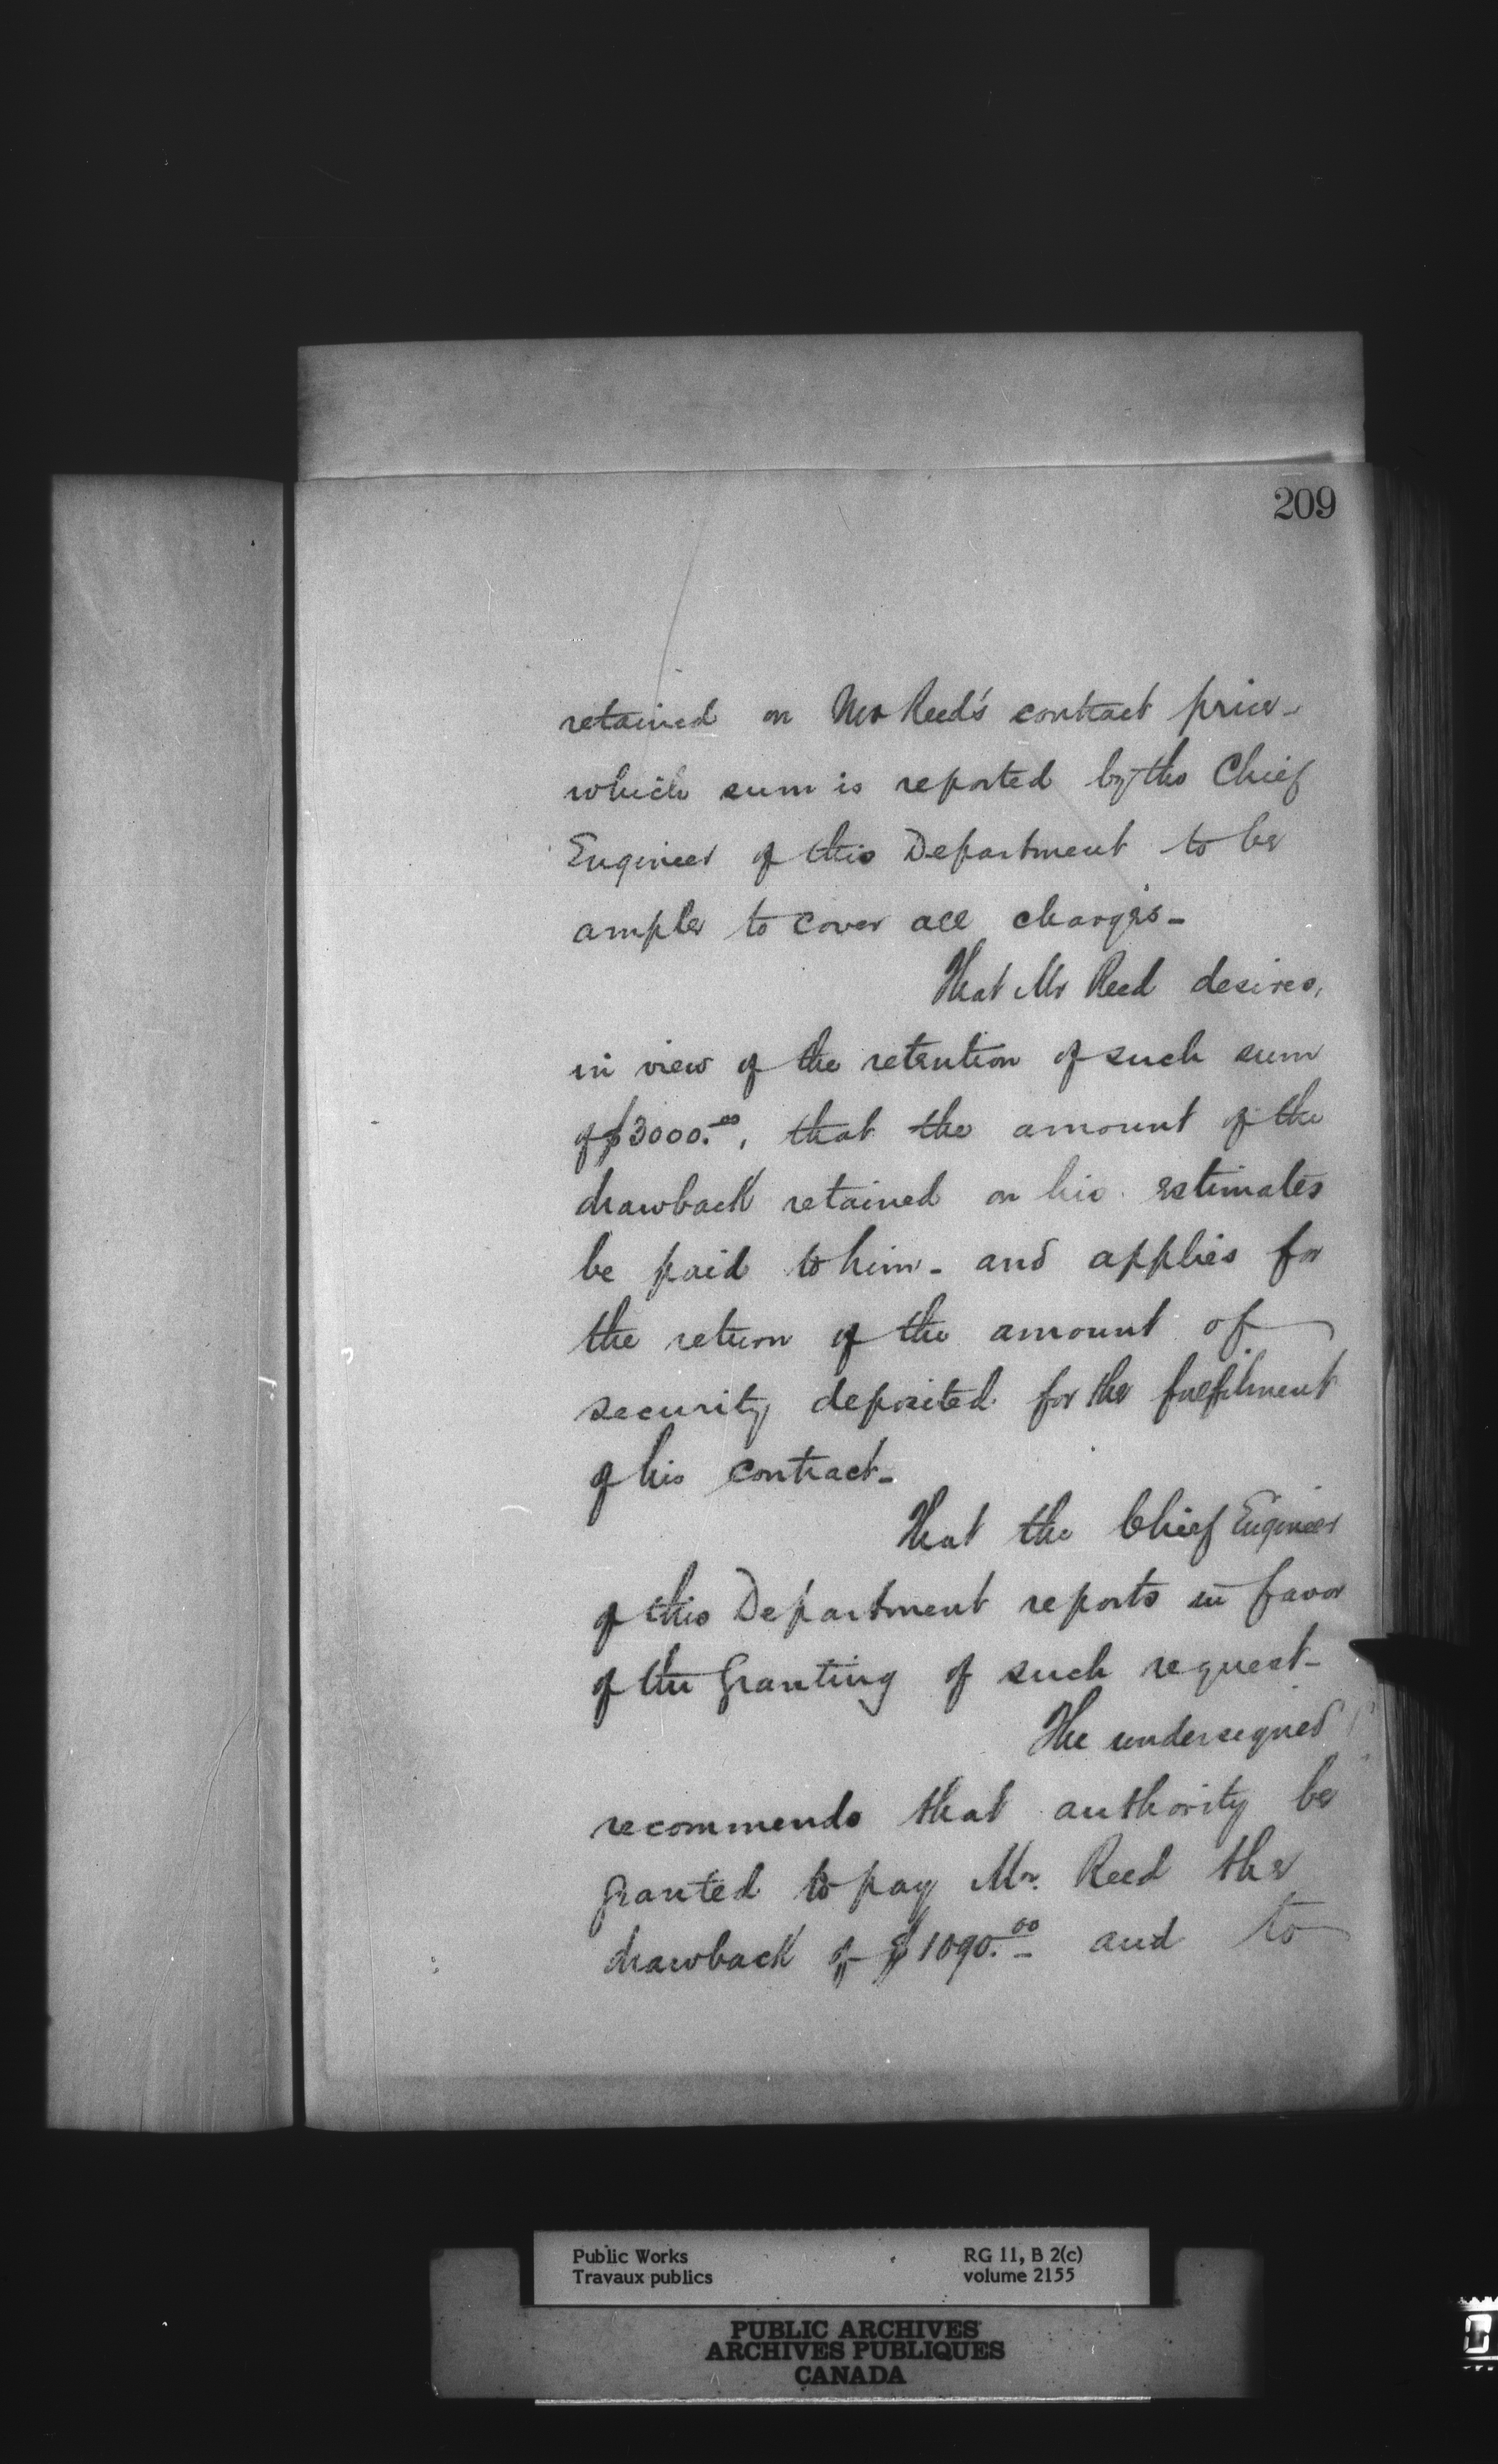 209
retained on Mr Reed's contract price -
which sum is reported by the Chief
Engineer of this Department to be
ample to cover all charges -
That Mr Reed desires,
in view of the retention of such sum
of $3000.00, that the amount of the
drawback retained on his estimates
be paid to him - and applies for
the return of the amount of
security deposited for the fulfilment
of his contract -
That the Chief Engineer
of this Department reports in favor
of the Granting of such request -
The undersigned
recommends that authority be
granted to pay Mr. Reed the
drawback of $1090.00 and to
Public Works RG 11, B 2(c)
Travaux publics volume 2155
PUBLIC ARCHIVES
ARCHIVES PUBLIQUES
CANADA